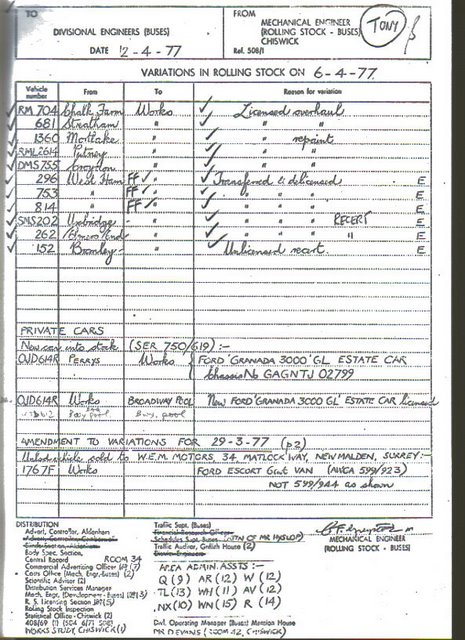 TO
DIVISIONAL ENGINEERS (BUSES)
DATE 2-4-77
FROM
MECHANICAL ENGINEER
(ROLLING STOCK - BUSES)
CHISWICK
Ref. 508/1
TONY
VARIATIONS IN ROLLING STOCK ON 6-4-77
Vehicle number From To Reason for variation
RM 704 Chalk Farm Works ✓ Licensed overhaul
681 Streatham " ✓ " "
1360 Mortlake " ✓ " repaint
RML2614 Putney " ✓ " "
DMS755 Croydon " ✓ " "
296 West Ham FF ✓ " ✓ Transferred & delicensed E
753 " FF ✓ " ✓ " " " E
814 " FF ✓ " ✓ " " " E
SMS202 Uxbridge " ✓ " " RECERT E
262 Elmers End " ✓ " " " E
152 Bromley " ✓ Unlicensed recert. E
PRIVATE CARS
New car into stock (SER 750/619) :-
OJD614R PERRYS Works FORD 'GRANADA 3000' GL ESTATE CAR
Chassis No GAGNTJ 02799
OJD614R Works BROADWAY POOL New FORD 'GRANADA 3000 GL' ESTATE CAR licensed
AMENDMENT TO VARIATIONS FOR 29-3-77 (p2)
sold to W.E.M. MOTORS, 34, MATLOCK WAY, NEW MALDEN, SURREY :-
1767F Works FORD ESCORT 6cwt VAN 599/923)
NOT 599/944 as shown
DISTRIBUTION
Advert. Controller, Aldenham
Body Spec. Section,
Central Record ROOM 34
Commercial Advertising Officer (7)
Costs Office (Mech. Engr.-Buses) (2)
Scientific Adviser (2)
Distribution Services Manager
Mech. Engr. (Development - Buses) 3
R. S. Licensing Section
Rolling Stock Inspection
Statistical Office - Chiswick (2)
408/69 (1) 504 6/71 508)
WORKS STUDY, CHISWICK (1)
Traffic Supt. (Buses)
Schedules Supt. Buses (ATTN OF MR HYSLOP)
Traffic Auditor, Griffith House (2)
AREA ADMIN. ASSTS :-
Q (9) AR (12) W (12)
TL (13) WH (11) AV (12)
NX (10) WN (15) R (14)
Dvl. Operating Manager (Buses) Mansion House
MR D EVANS (ROOM 42, CHISWICK)
MECHANICAL ENGINEER
(ROLLING STOCK - BUSES)